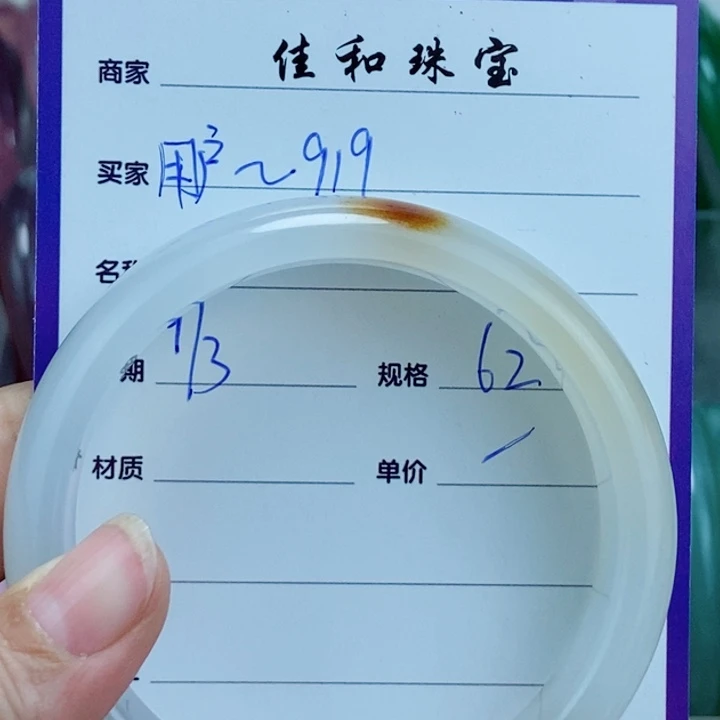 商家 佳和珠宝
买家 用户~919
名称
期 1/3 规格 62
材质 单价 /